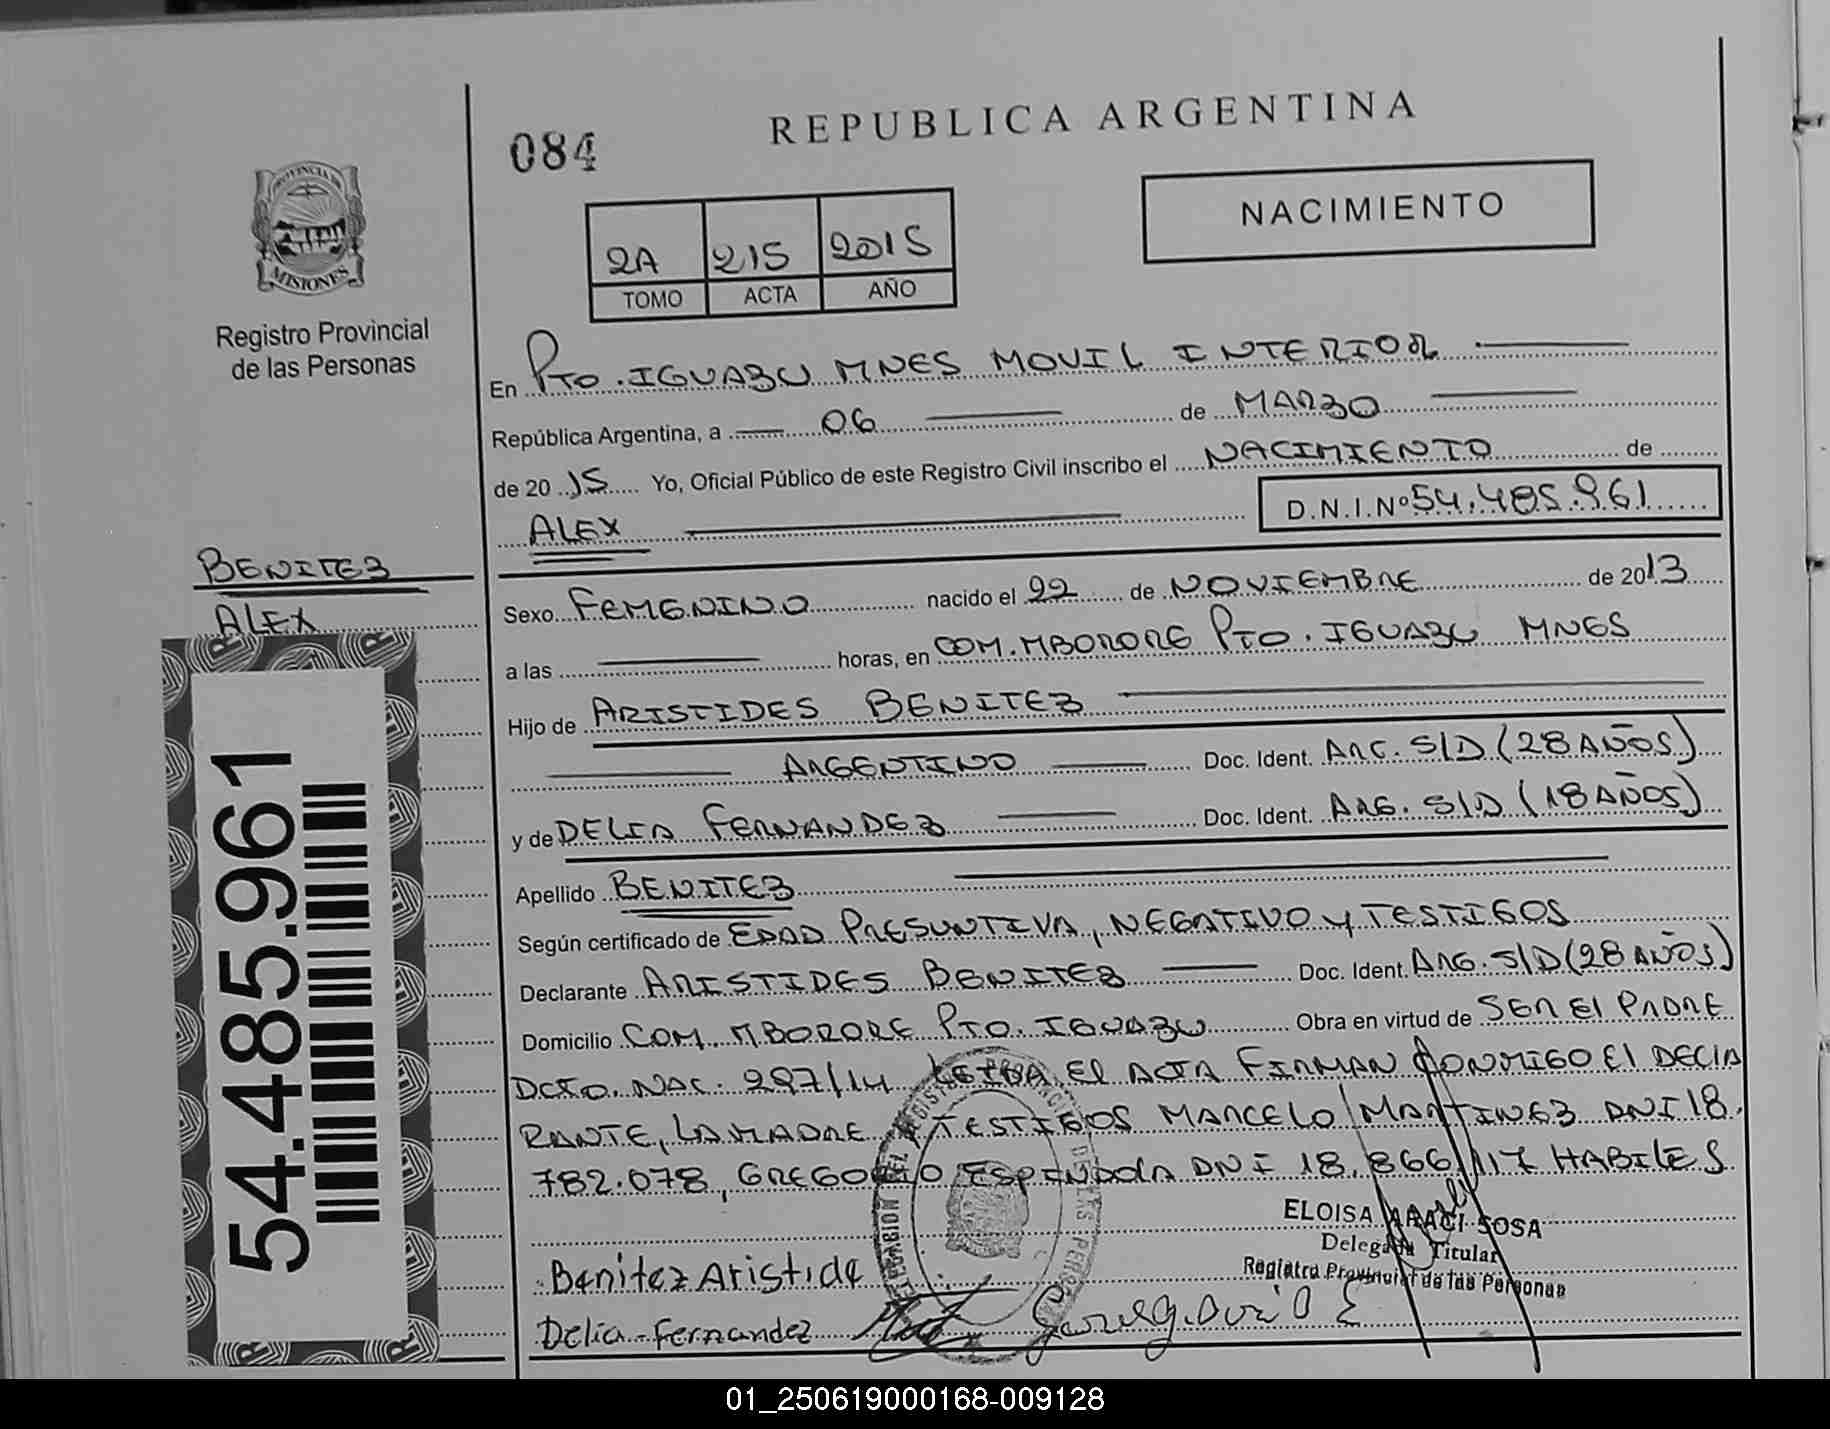 REPUBLICA ARGENTINA
084
NACIMIENTO
2A 215 2015
TOMO ACTA AÑO
PROVINCIA DE
MISIONES
Registro Provincial
de las Personas
En PTO. IGUAZU MNES MOVIL INTERIOR
República Argentina, a 06 de MARZO
de 2015 Yo, Oficial Público de este Registro Civil inscribo el NACIMIENTO de
ALEX D.N.I.Nº 54.485.961
BENITEZ
ALEX
54.485.961
Sexo FEMENINO nacido el 22 de NOVIEMBRE de 2013
a las horas, en COM. MBORORE PTO. IGUAZU MNES
Hijo de ARISTIDES BENITEZ
ARGENTINO Doc. Ident. ARG. S/D (28 AÑOS)
y de DELIA FERNANDEZ Doc. Ident. ARG. S/D (18 AÑOS)
Apellido BENITEZ
Según certificado de EDAD PRESUNTIVA, NEGATIVO y TESTIGOS
Declarante ARISTIDES BENITEZ Doc. Ident. ARG. S/D (28 AÑOS)
Domicilio COM. MBORORE PTO. IGUAZU Obra en virtud de SER El PADRE
DCTO. NAC. 297/14 LEIDA El ACTA FIRMAN CONMIGO El DECLA
RANTE, LA MADRE y TESTIGOS MARCELO MARTINEZ DNI 18.
782.078, GREGORIO ESPINDOLA DNI 18.866.117 HABILES
ELOISA ARACI SOSA
Delegada Titular
Registro Provincial de las Personas
Benitez Aristide
Delia Fernandez
01_250619000168-009128